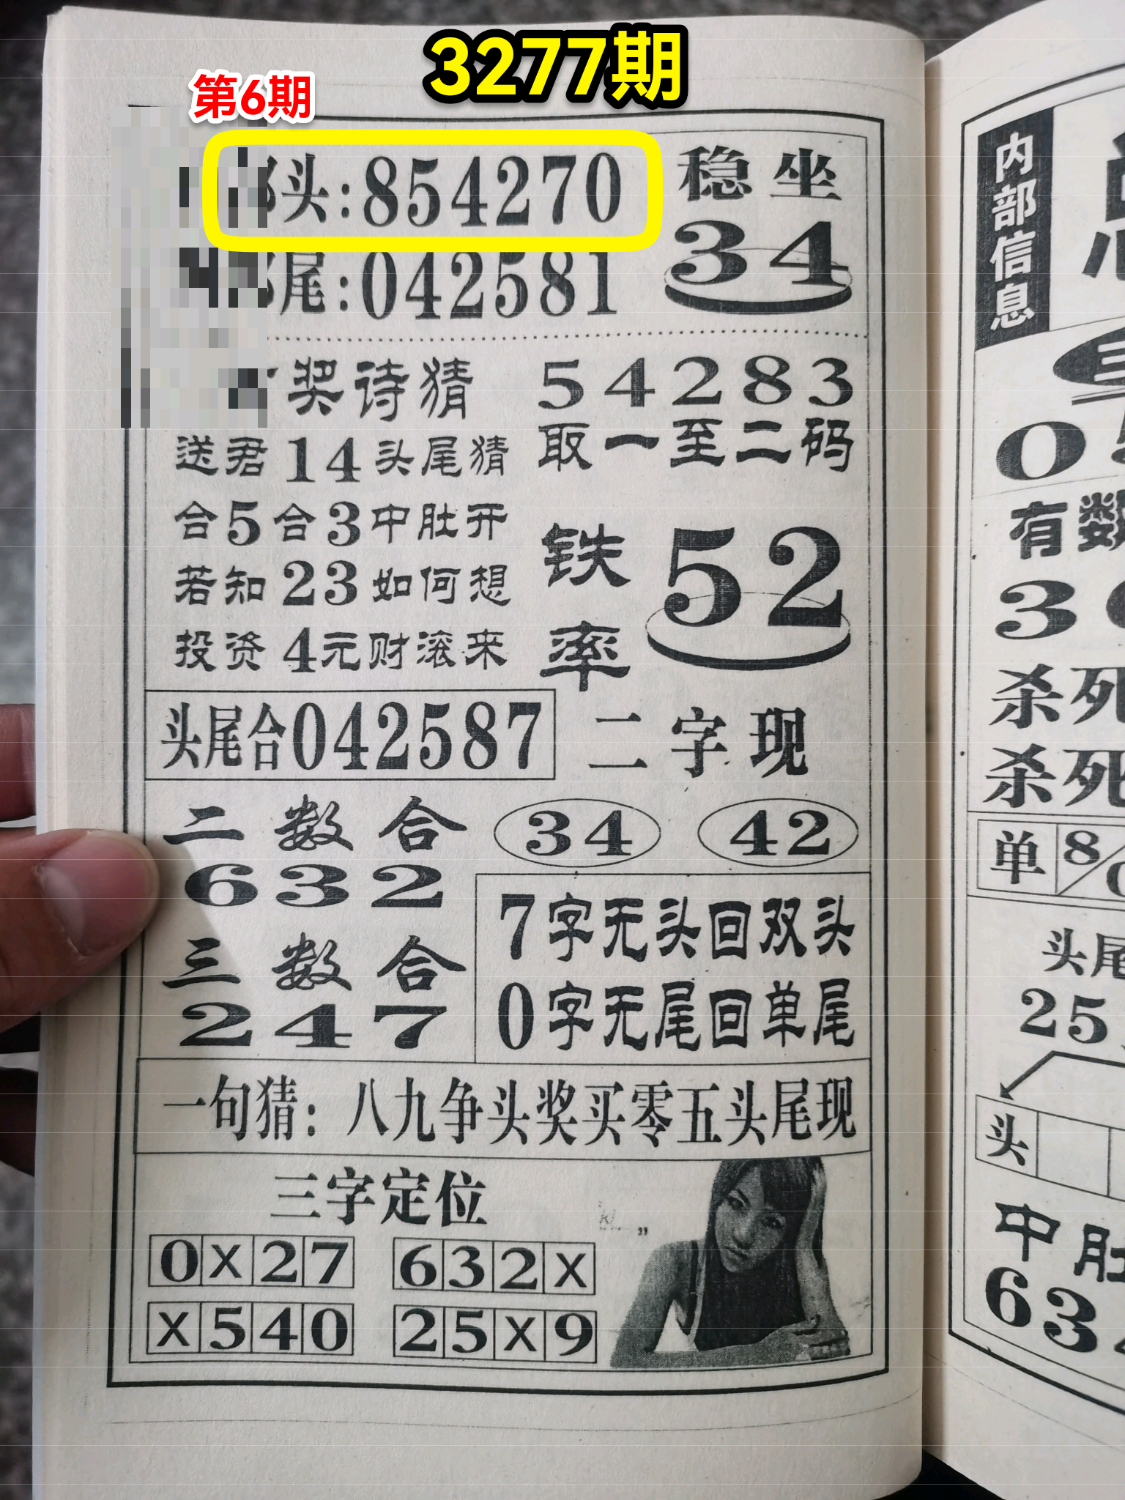 3277期
第6期
头:854270
稳坐
34
尾:042581
奖诗猜
送君14头尾猜
合5合3中肚开
若知23如何想
投资4元财滚来
54283
取一至二码
铁率
52
头尾合042587
二字现
34 42
二数合
632
三数合
247
7字无头回双头
0字无尾回单尾
一句猜:八九争头奖买零五头尾现
三字定位
0X27 632X
X540 25X9
内部信息
0
有数
3
杀死
杀死
单 8/0
头尾
25
头
中肚
63